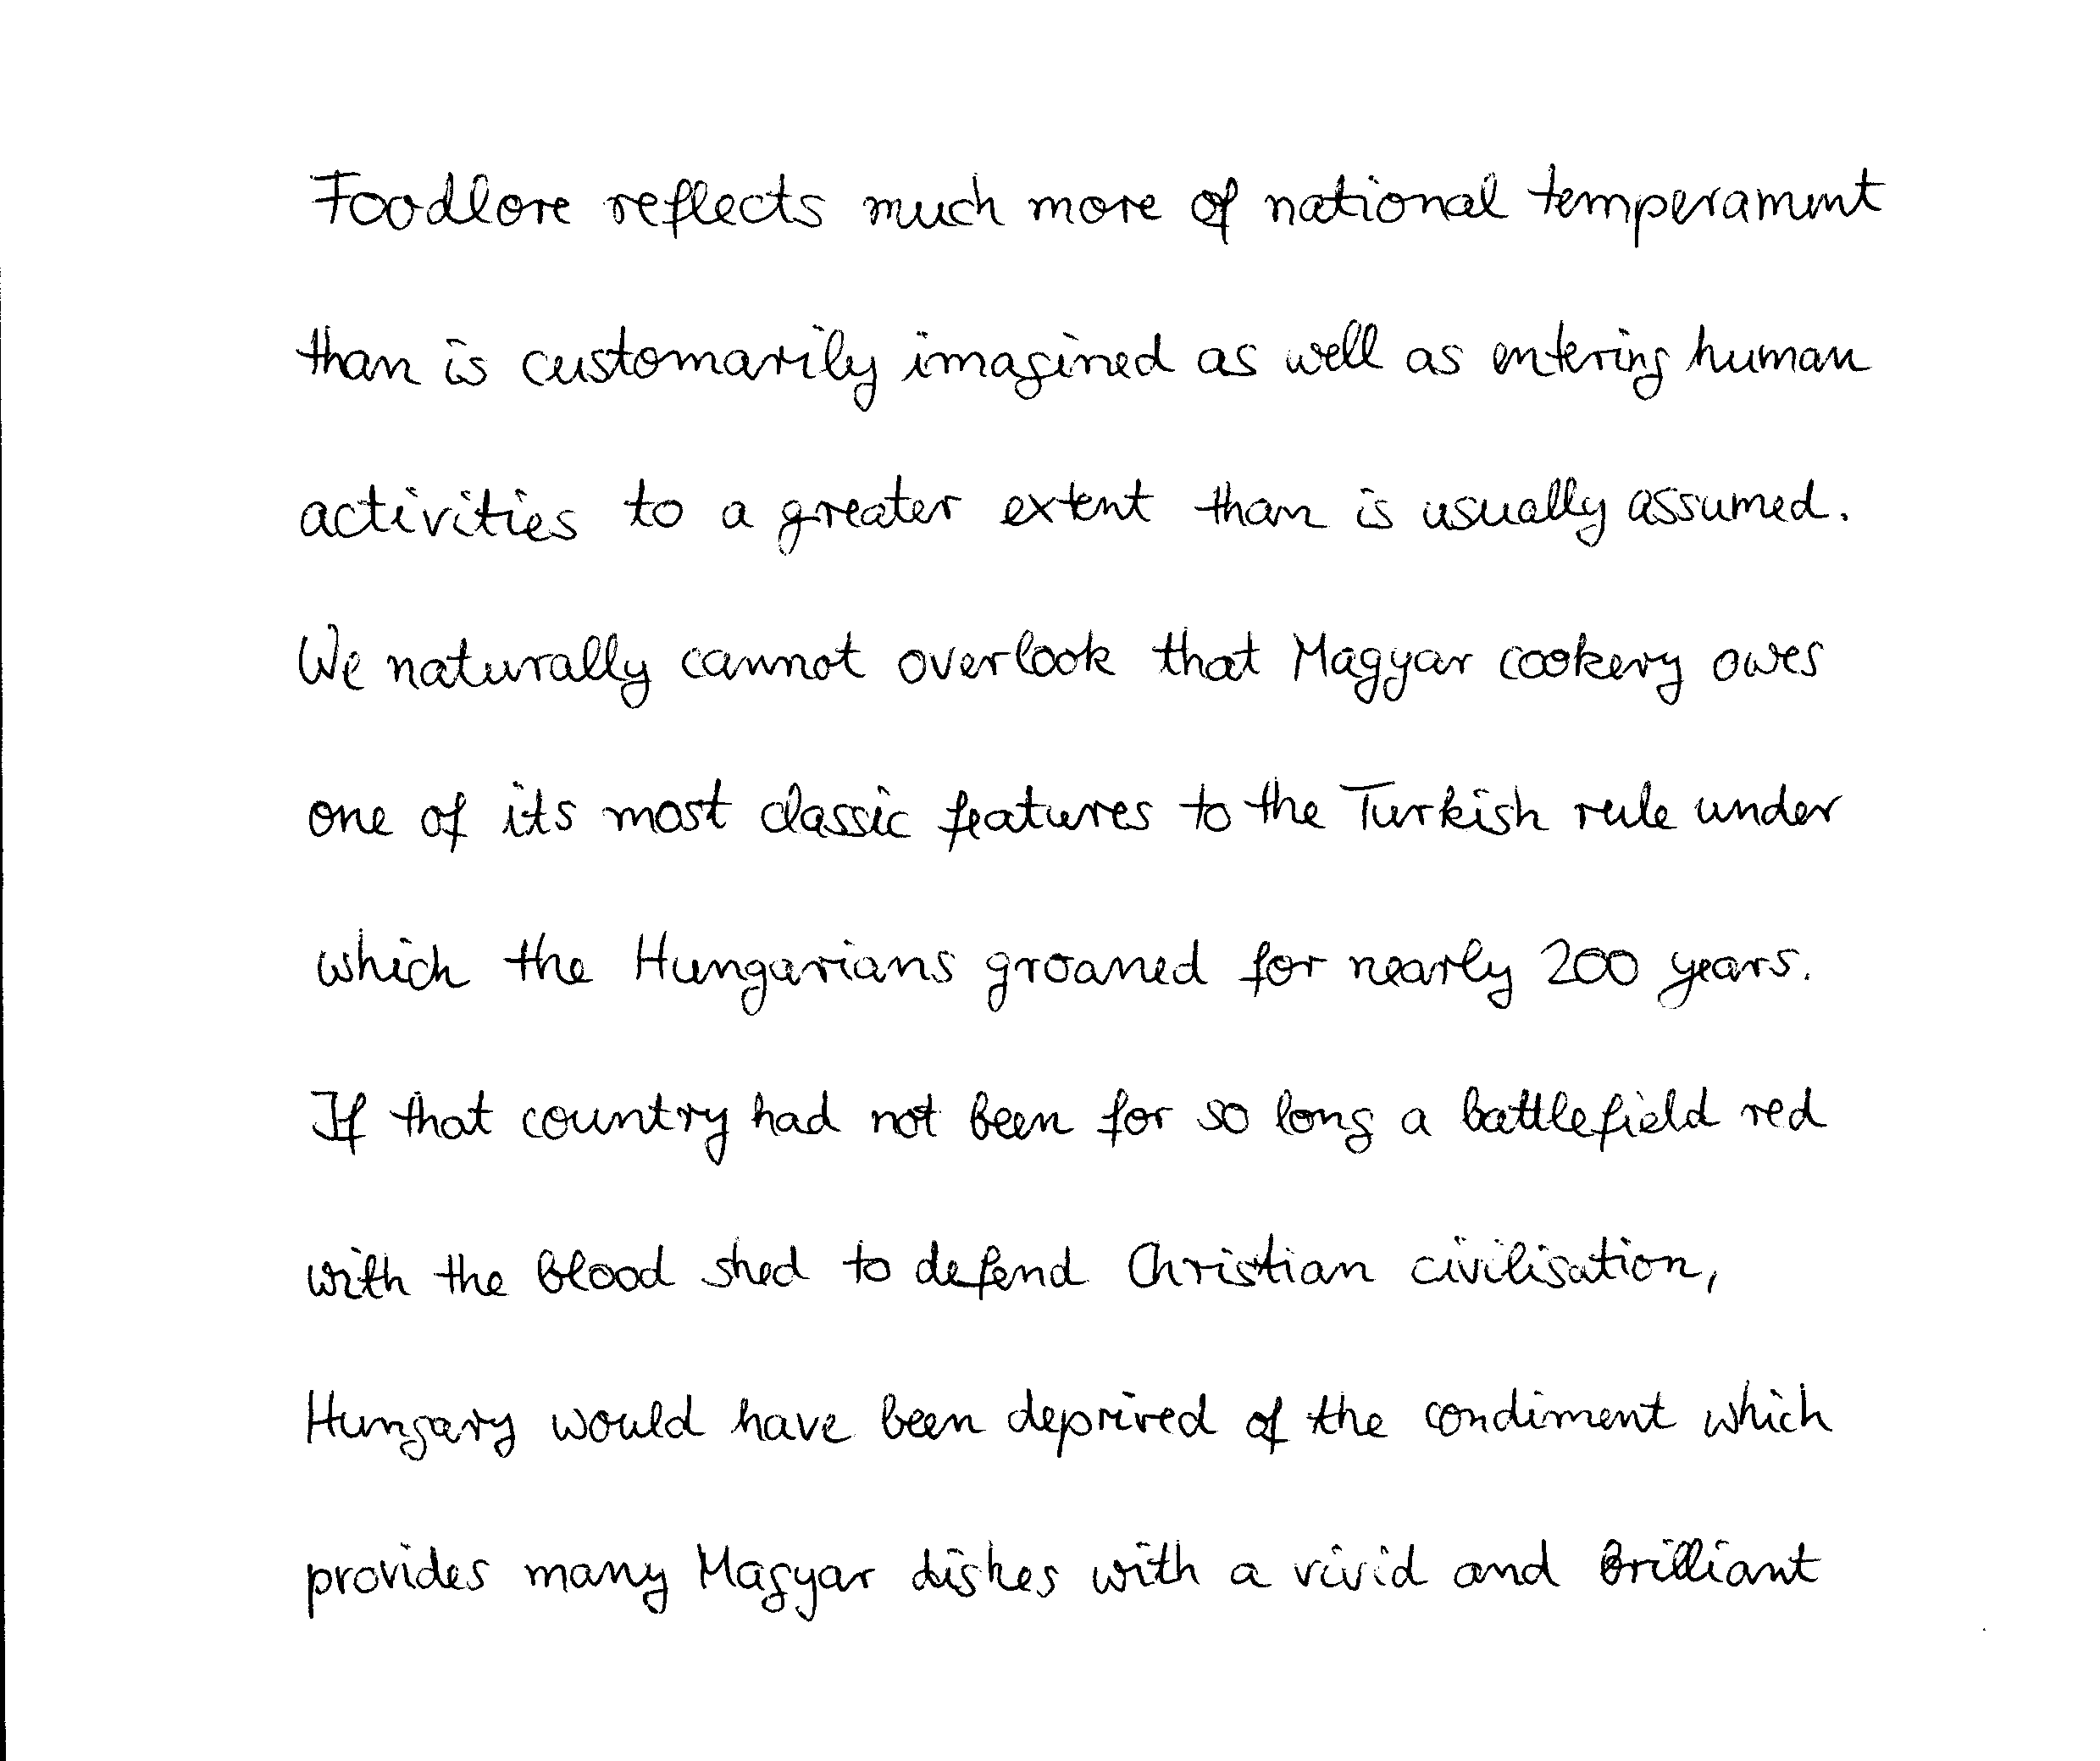 Foodlore reflects much more of national temperament
than is customarily imagined as well as entering human
activities to a greater extent than is usually assumed.
We naturally cannot overlook that Magyar cookery owes
one of its most classic features to the Turkish rule under
which the Hungarians groaned for nearly 200 years.
If that country had not been for so long a battlefield red
with the blood shed to defend Christian civilisation,
Hungary would have been deprived of the condiment which
provides many Magyar dishes with a vivid and brilliant